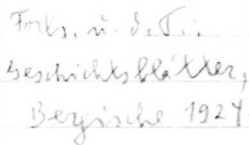 Forts. u. d. T.:
Geschichtsblätter,
Bergische 1924